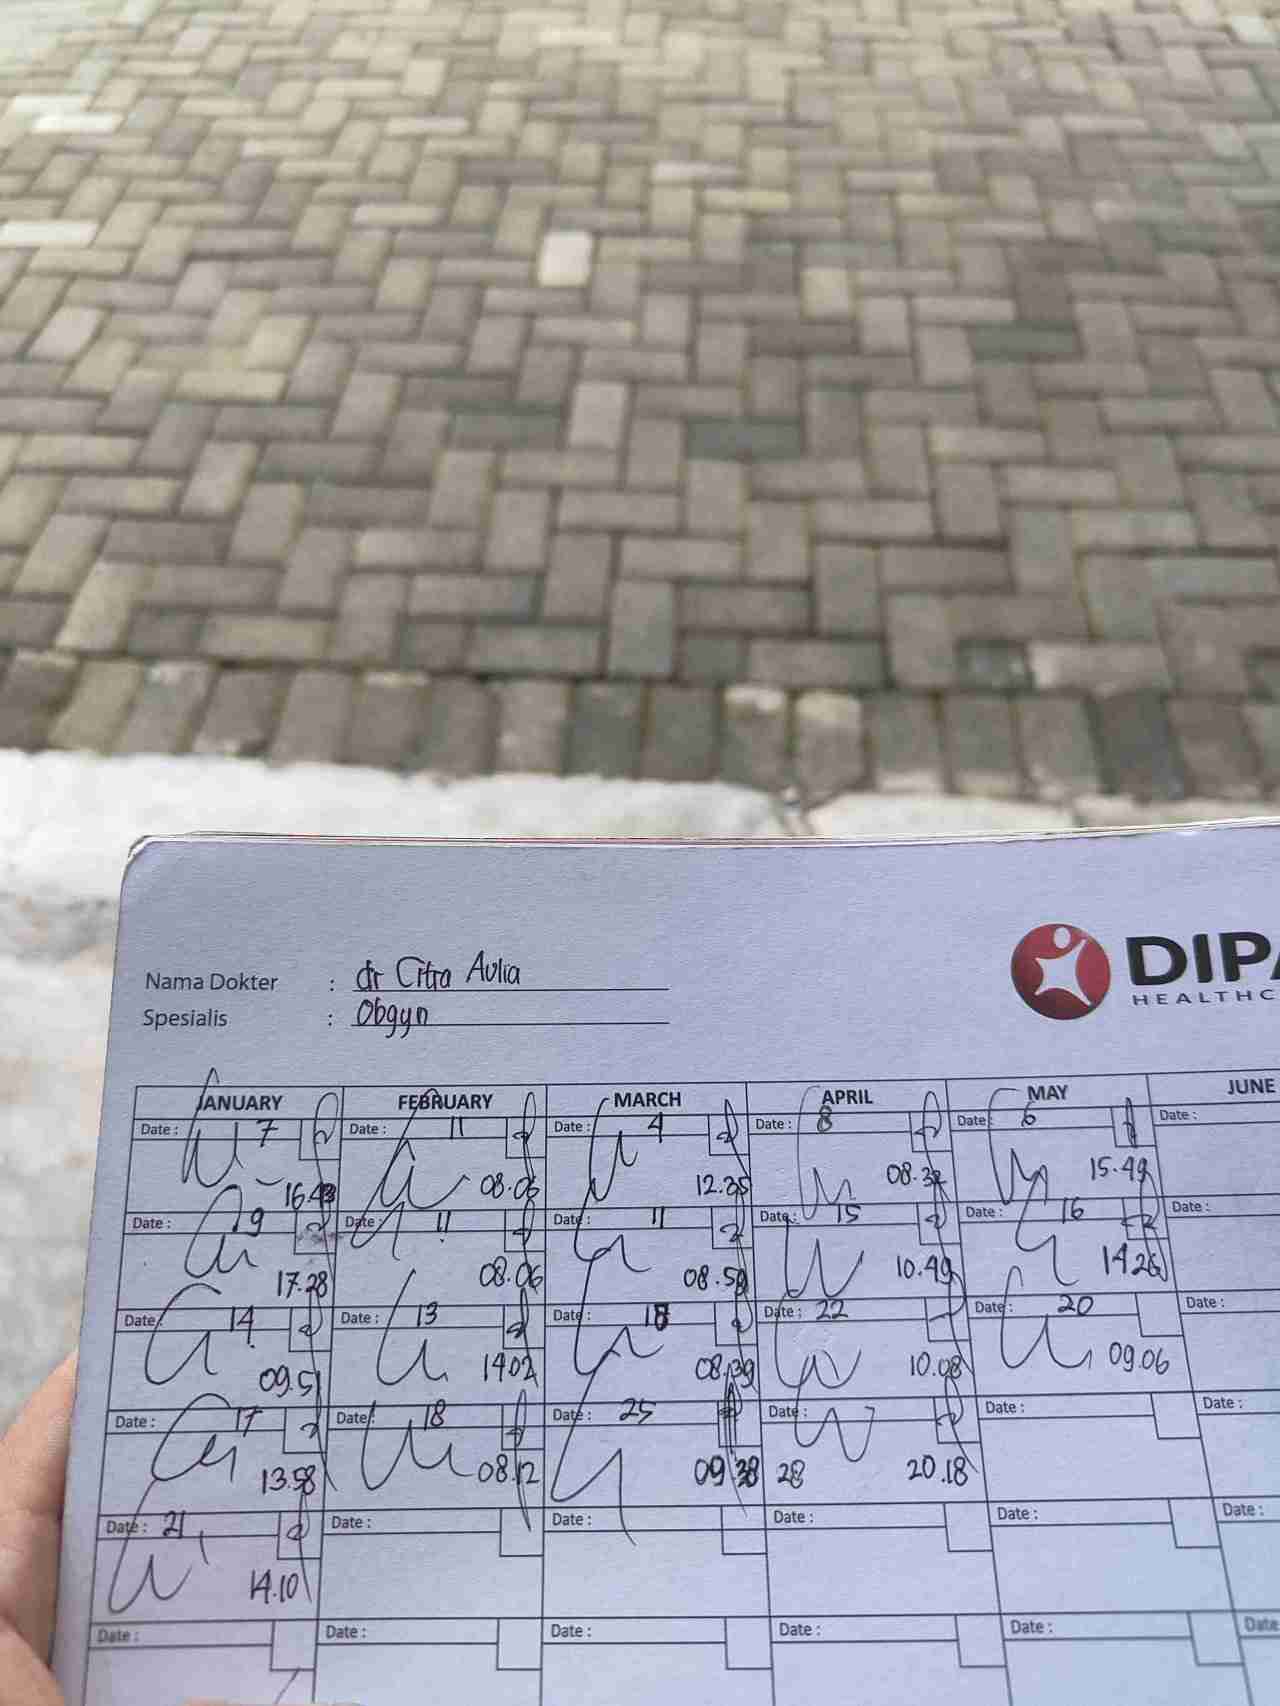 Nama Dokter : dr Citra Aulia
Spesialis : Obgyn
DIPA
HEALTHC
JANUARY FEBRUARY MARCH APRIL MAY JUNE
Date : 7 Date : 11 Date : 4 Date : 8 Date : 6 Date :
16.43 08.06 12.35 08.32 15.49
Date : 9 Date : 11 Date : 11 Date : 15 Date : 16 Date :
17.28 08.06 08.59 10.49 14.26
Date : 14 Date : 13 Date : 18 Date : 22 Date : 20 Date :
09.51 14.02 08.39 10.08 09.06
Date : 17 Date : 18 Date : 25 Date : Date : Date :
13.58 08.12 09.38 28 20.18
Date : 21 Date : Date : Date : Date : Date :
14.10
Date : Date : Date : Date : Date : Date